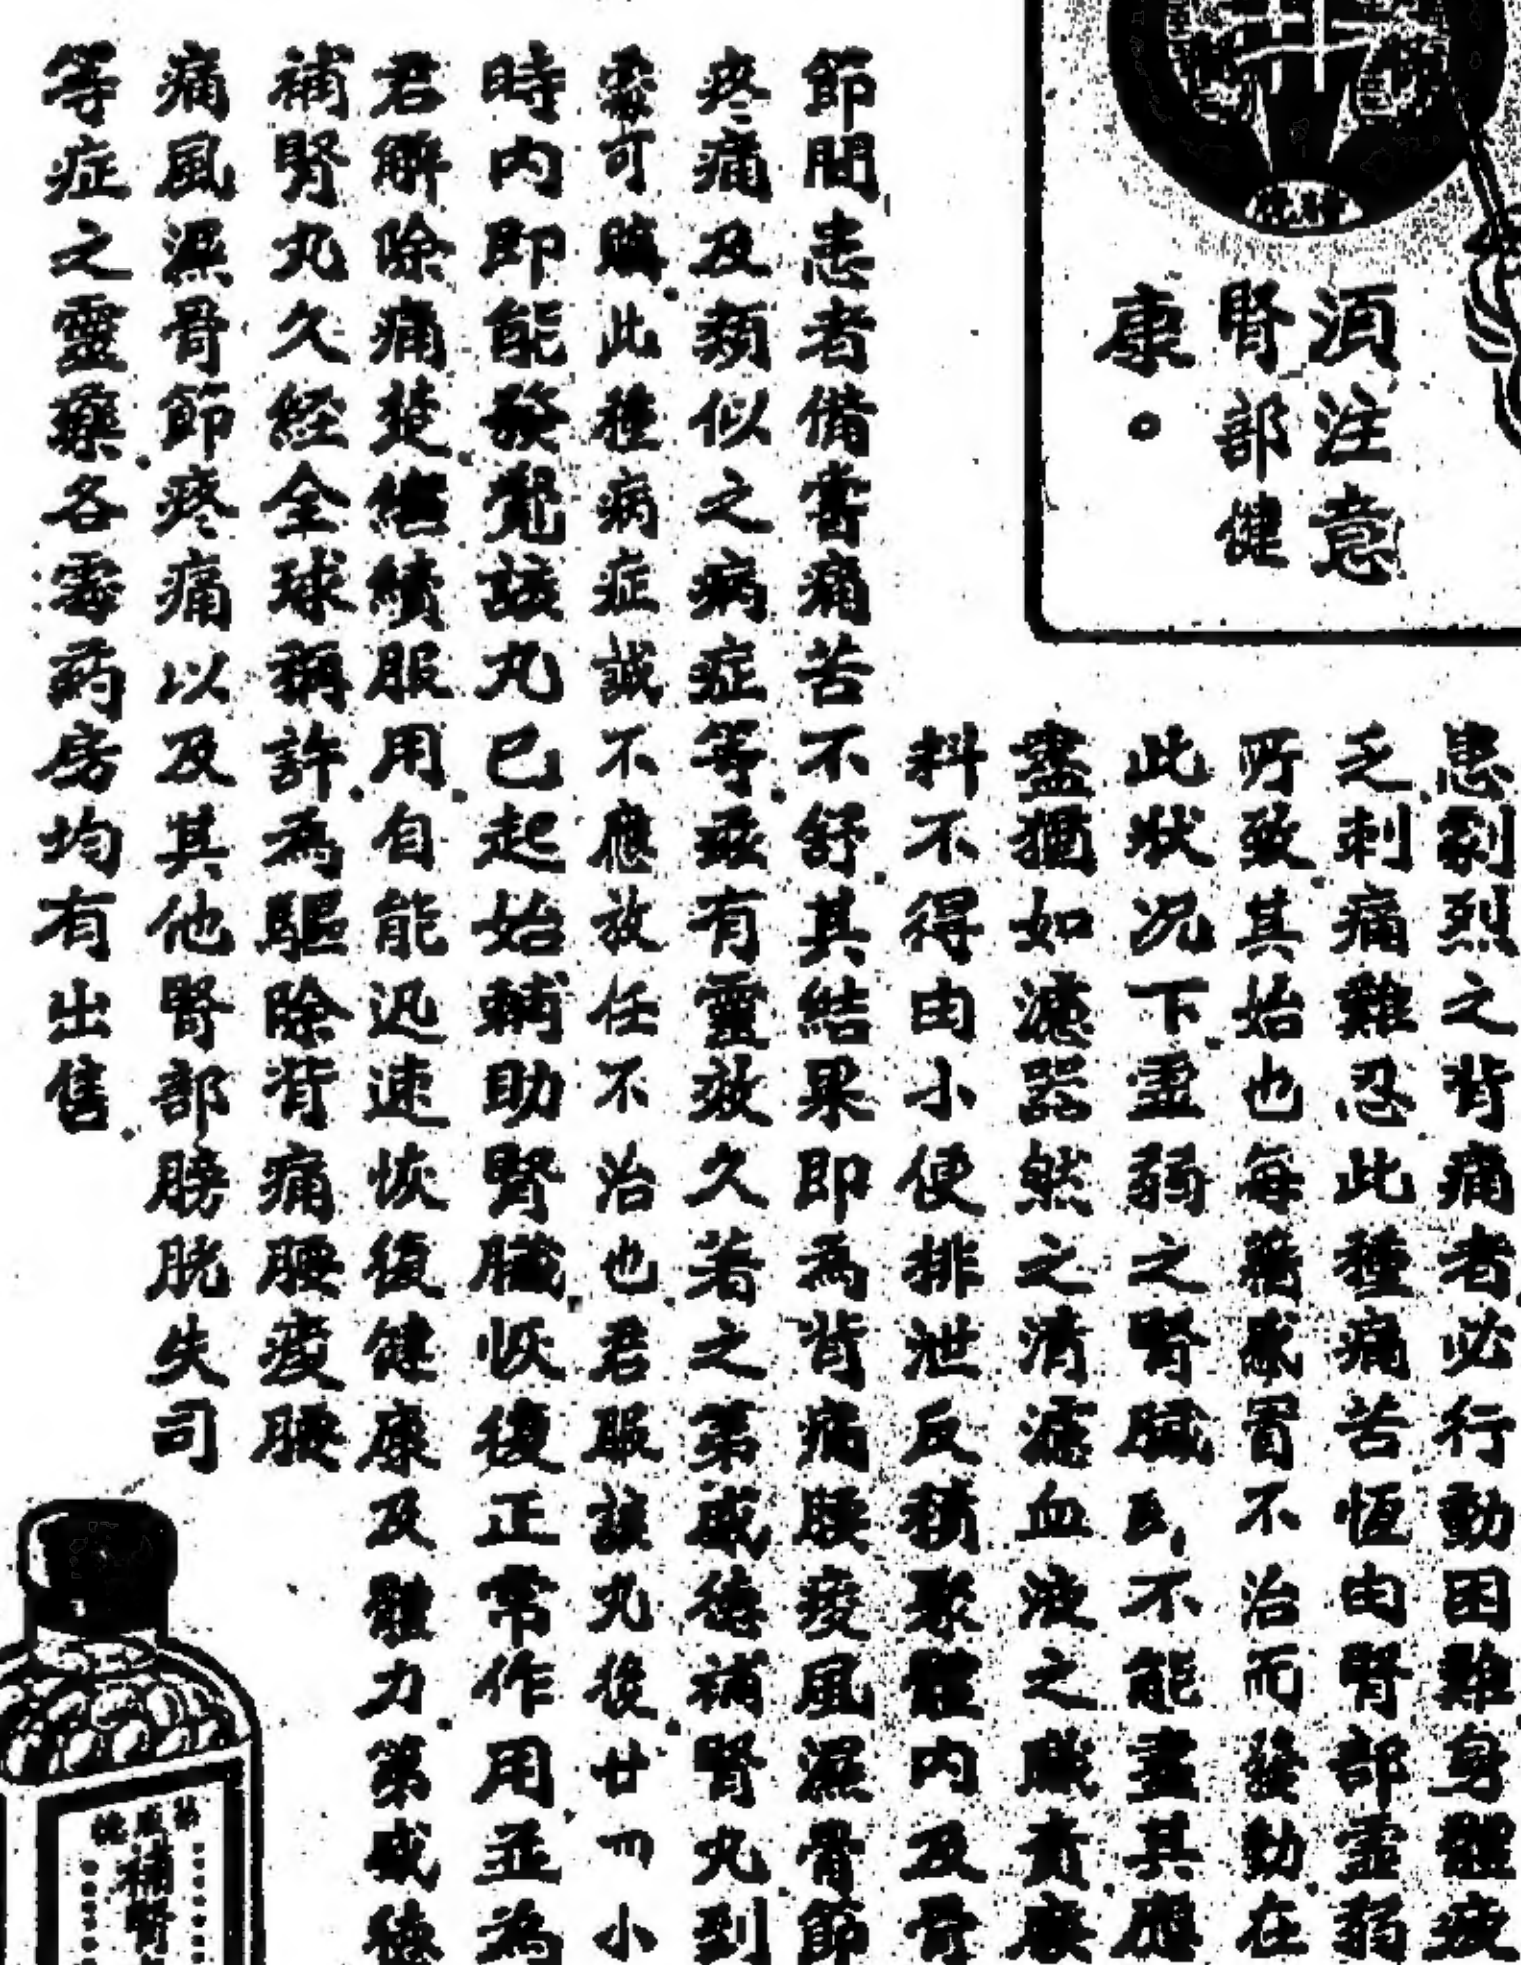 須注意
腎部健
康。
患劇烈之背痛者必行動困難身體疲
乏刺痛難忍此種痛苦恆由腎部虛弱
所致其始也每藉感冒不治而發動在
此狀况下虛弱之腎臟不能盡其應
盡猶如濾器然之清濾血液之職責廢
料不得由小便排泄反積聚體內及骨
節間患者備嘗痛苦不舒其結果即為背痛腰痠風濕骨節
疼痛及類似之病症等症有靈效久著之第威德補腎丸到
處可購此種病症誠不應放任不治也君服該丸後廿四小
時內即能發覺該丸已起始輔助腎臟恢復正常作用並為
君解除痛楚繼續服用自能迅速恢復健康及體力第威德
補腎丸久經全球稱許為驅除背痛腰痠腰
痛風濕骨節疼痛以及其他腎部膀胱失司
等症之靈藥各處药房均有出售
第威德
補腎